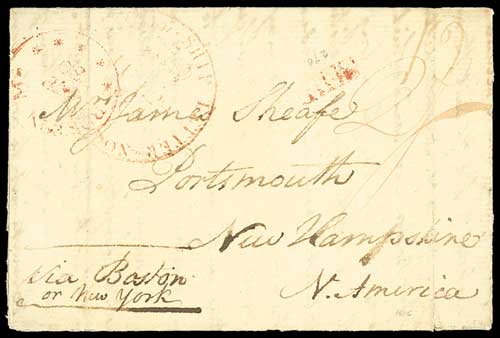 SHIP LETTER
Mr James Sheafe
Portsmouth
New Hampshire
N. America
via Boston
or New York